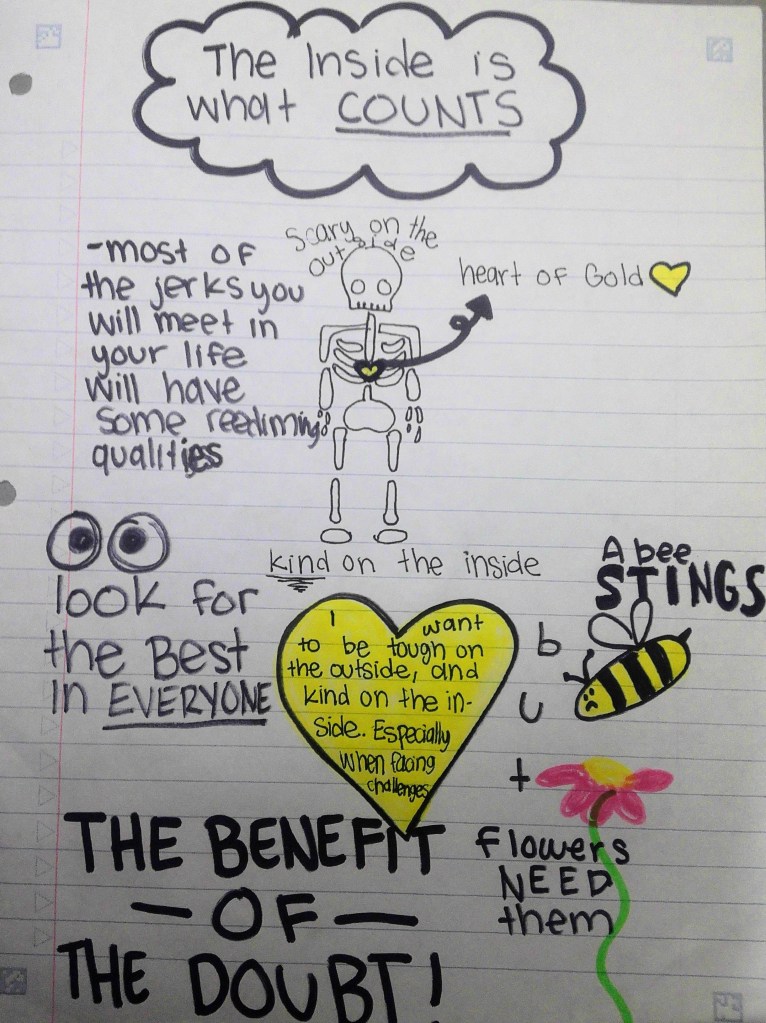 The Inside is
what COUNTS
-most of
the jerks you
will meet in
your life
will have
some reediming
qualities
Scary on the
outside
heart of Gold
kind on the inside
look for
the Best
in EVERYONE
I want
to be tough on
the outside, and
kind on the in-
side.. Especially
when facing
challenges
A bee
STINGS
b
u
t
flowers
NEED
them
THE BENEFIT
- OF -
THE DOUBT!